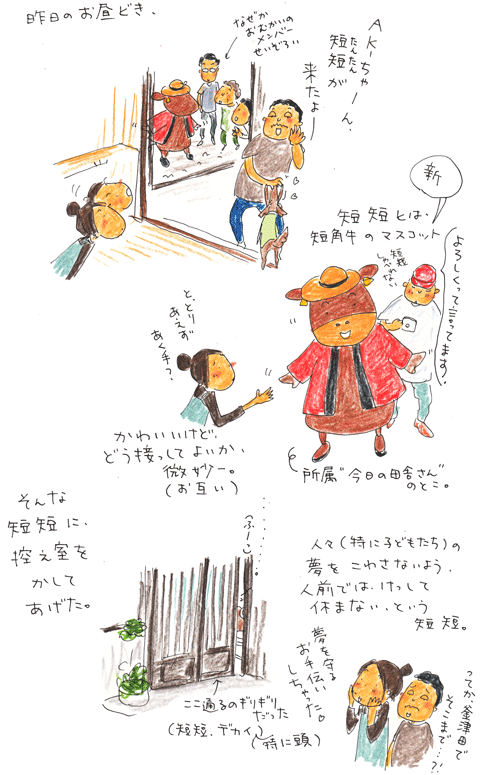 昨日のお昼どき、
なぜか
おむかいの
メンバー
せいぞろい
AKーちゃーん、
短短が
たんたん
来たよー
新
短短とは、
短角牛のマスコット
よろしくって言ってます。
短短
しゃべれない
と、とりあえず
あく手?
かわいいけど、
どう接してよいか、
微妙ー。
(お互い)
所属"今日の田舎さん"
のとこ。
そんな
短短に、
控え室を
かして
あげた。
(ふーっ)
人々(特に子どもたち)の
夢をこわさないよう、
人前では、けっして
休まない、という
短短。
夢を守る
お手伝い
しちゃった。
ここ通るのぎりぎり
だった
(短短、デカイ)
(特に頭)
ってか、釜津田で
そこまで…?!